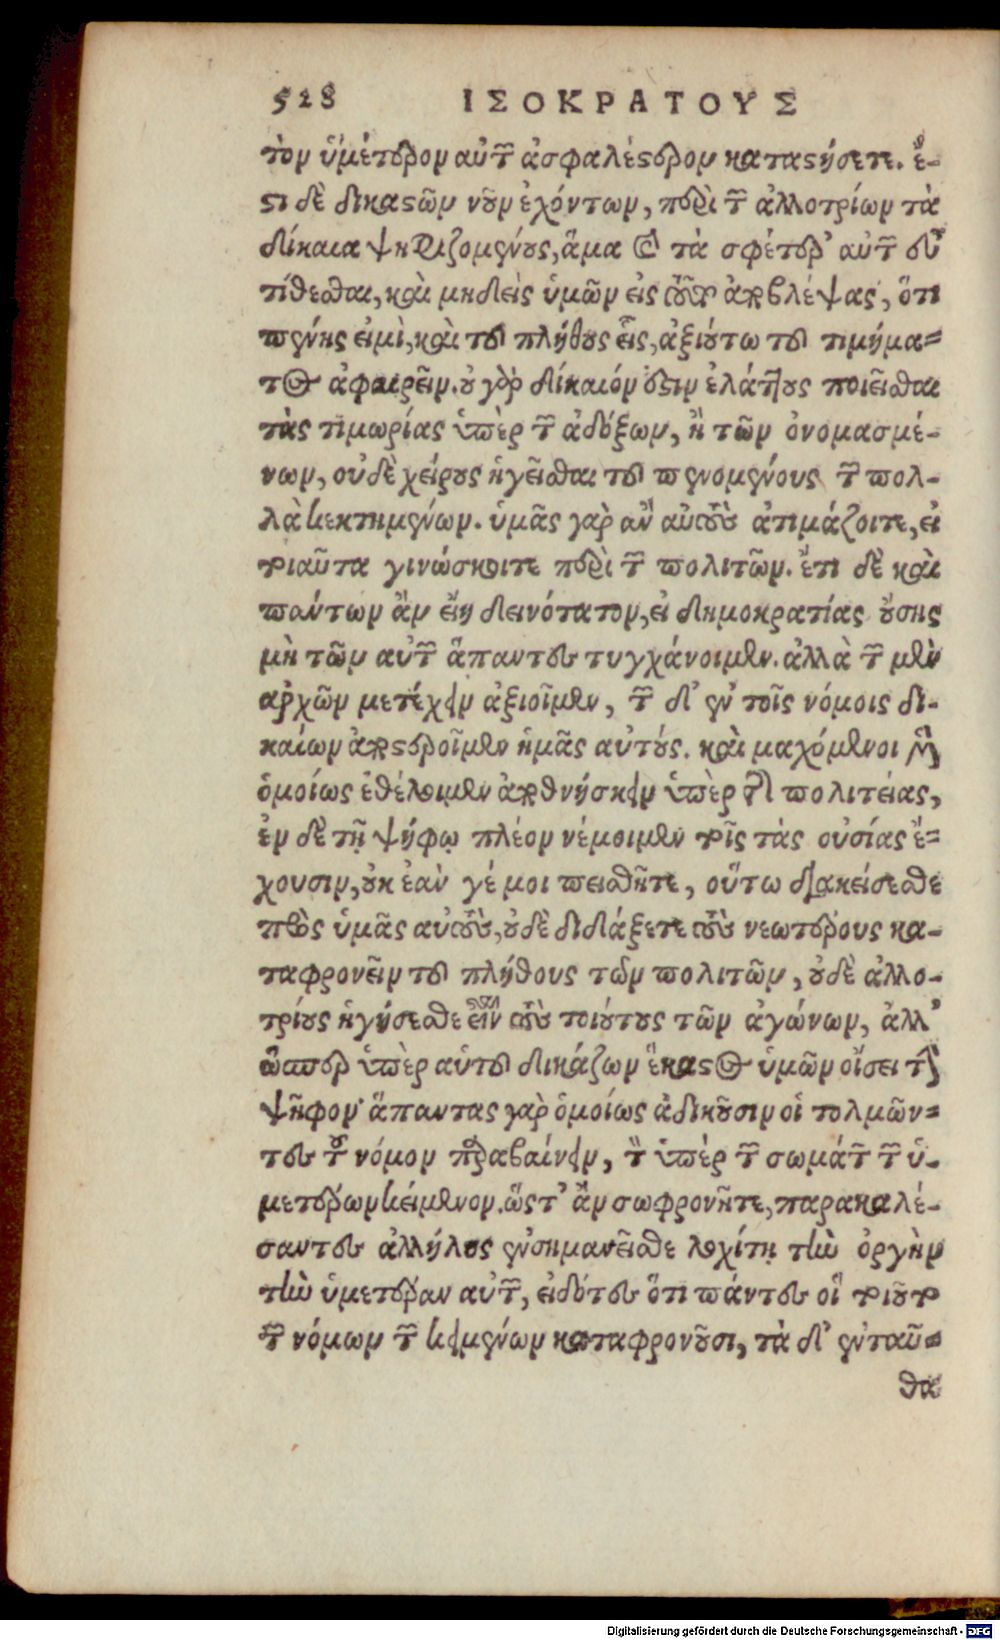 528 ΙΣΟΚΡΑΤΟΥΣ
τὸν ὑμέτερον αὐτῶν ἀσφαλέστερον καταστήσετε. ἔ-
στι δὲ δικαστῶν νοῦν ἐχόντων, περὶ τῶν ἀλλοτρίων τὰ
δίκαια ψηφιζομένους, ἅμα καὶ τὰ σφέτερ' αὐτῶν εὖ
τίθεσθαι, καὶ μηδεὶς ὑμῶν εἰς τοῦτο ἀποβλέψας, ὅτι
πένης εἰμὶ, καὶ τοῦ πλήθους εἷς, ἀξιούτω τοῦ τιμήμα-
τος ἀφαιρεῖν. οὐ γὰρ δίκαιόν ἐστιν ἐλάττους ποιεῖσθαι
τὰς τιμωρίας ὑπὲρ τῶν ἀδόξων, ἢ τῶν ὀνομασμέ-
νων, οὐδὲ χείρους ἡγεῖσθαι τοὺς πενομένους τῶν πολ-
λὰ κεκτημένων. ὑμᾶς γὰρ ἂν αὐτοὺς ἀτιμάζοιτε, εἰ
τοιαῦτα γινώσκοιτε περὶ τῶν πολιτῶν. ἔτι δὲ καὶ
πάντων ἂν εἴη δεινότατον, εἰ δημοκρατίας οὔσης
μὴ τῶν αὐτῶν ἅπαντες τυγχάνοιμεν. ἀλλὰ τῶν μὲν
ἀρχῶν μετέχειν ἀξιοῖμεν, τῶν δ' ἐν τοῖς νόμοις δι-
καίων ἀποστεροῖμεν ἡμᾶς αὐτούς. καὶ μαχόμενοι μὲν
ὁμοίως ἐθέλοιμεν ἀποθνήσκειν ὑπὲρ τῆς πολιτείας,
ἐν δὲ τῇ ψήφῳ πλέον νέμοιμεν τοῖς τὰς οὐσίας ἔ-
χουσιν, οὐκ ἐὰν γέ μοι πεισθῆτε, οὕτω διακείσεσθε
πρὸς ὑμᾶς αὐτοὺς, οὐδὲ διδάξετε τοὺς νεωτέρους κα-
ταφρονεῖν τοῦ πλήθους τῶν πολιτῶν, οὐδὲ ἀλλο-
τρίους ἡγήσεσθε εἶναι τοὺς τοιούτους τῶν ἀγώνων, ἀλλ'
ὥσπερ ὑπὲρ αὑτοῦ δικάζων ἕκαστος ὑμῶν οἴσει τὴν
ψῆφον· ἅπαντας γὰρ ὁμοίως ἀδικοῦσιν οἱ τολμῶν-
τες τὸν νόμον παραβαίνειν, τὸν ὑπὲρ τῶν σωμάτων τῶν ὑ-
μετέρων κείμενον. ὥστ' ἂν σωφρονῆτε, παρακαλέ-
σαντες ἀλλήλους ἐνσημανεῖσθε λοχίτῃ τὴν ὀργὴν
τὴν ὑμετέραν αὐτῶν, εἰδότες ὅτι πάντες οἱ τοιοῦτοι
τῶν νόμων τῶν κειμένων καταφρονοῦσι, τὰ δ' ἐνταῦ-
θα
Digitalisierung gefördert durch die Deutsche Forschungsgemeinschaft - DFG